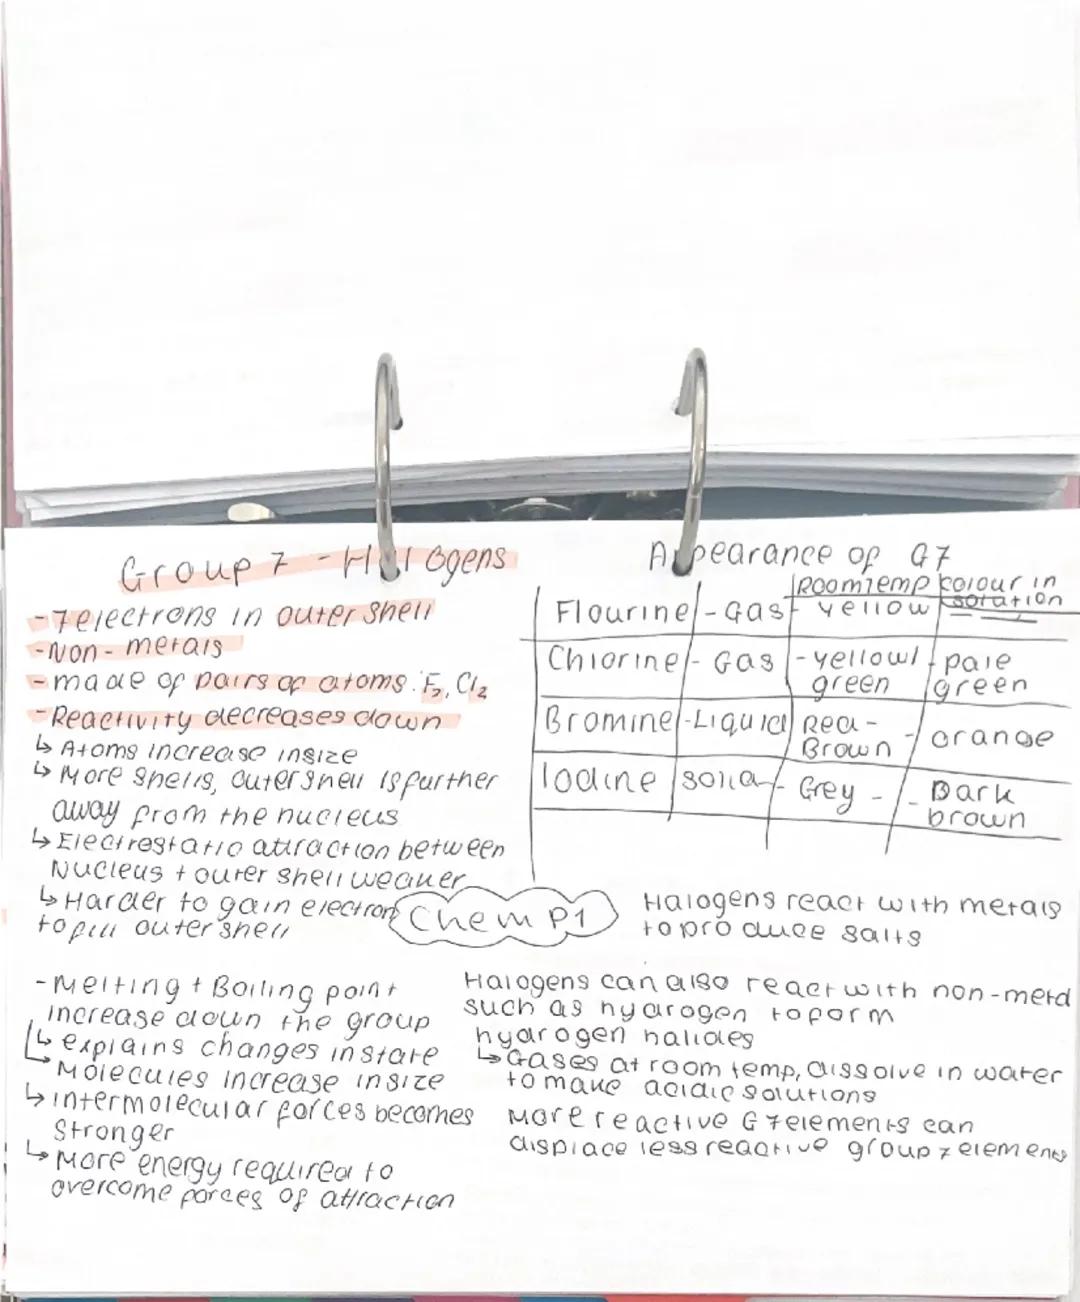 Group 7 - Halogens
-7 electrons in outer shell
-Non-metals
-made of pairs of atoms: F₂, Cl₂
-Reactivity decreases down
↳ Atoms increase in size
↳ More shells, outer shell is further
away from the nucleus
↳ Electrostatic attraction between
Nucleus + outer shell weaker
↳ Harder to gain electron
to fill outer shell
Chem P1
-Melting + Boiling point
increase down the group
↳ explains changes in state
↳ Molecules increase in size
↳ intermolecular forces becomes
stronger
↳ More energy required to
overcome forces of attraction
Appearance of G7
Room temp colour in
solution
Flourine - Gas - yellow
Chlorine - Gas - yellow/ pale
green green
Bromine - Liquid Red - orange
Brown
Iodine solid - Grey - - Dark
brown
Halogens react with metals
to produce salts
Halogens can also react with non-metal
such as hydrogen to form
hydrogen halides
↳ Gases at room temp, dissolve in water
to make acidic solutions
More reactive G7 elements can
displace less reactive group 7 elements